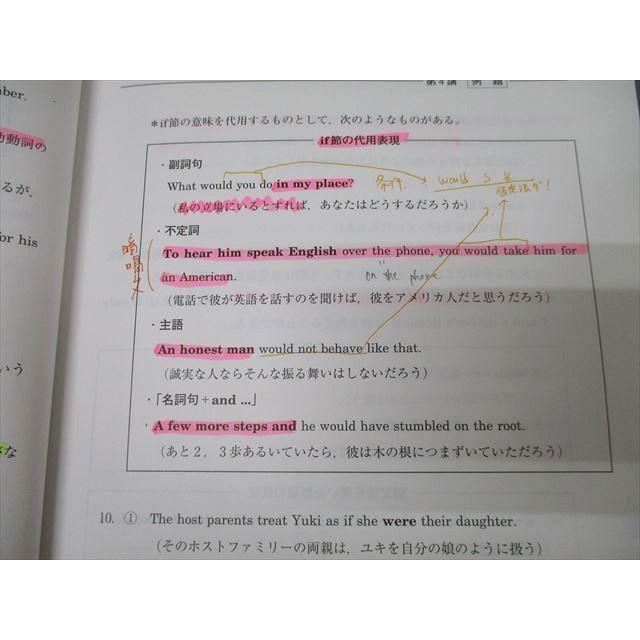 第4講 例題
mber.
助動詞の
るが,
for his
いう
な
*if節の意味を代用するものとして，次のようなものがある。
if節の代用表現
・副詞句
What would you do in my place?
条件. would S
(私の立場にいるとすれば，あなたはどうするだろうか)
・不定詞
To hear him speak English over the phone, you would take him for
an American.
on the phone
(電話で彼が英語を話すのを聞けば，彼をアメリカ人だと思うだろう)
・主語
An honest man would not behave like that.
(誠実な人ならそんな振る舞いはしないだろう)
・「名詞句+and ...」
A few more steps and he would have stumbled on the root.
(あと2，3歩あるいていたら，彼は木の根につまずいていただろう)
10. ① The host parents treat Yuki as if she were their daughter.
(そのホストファミリーの両親は，ユキを自分の娘のように扱う)